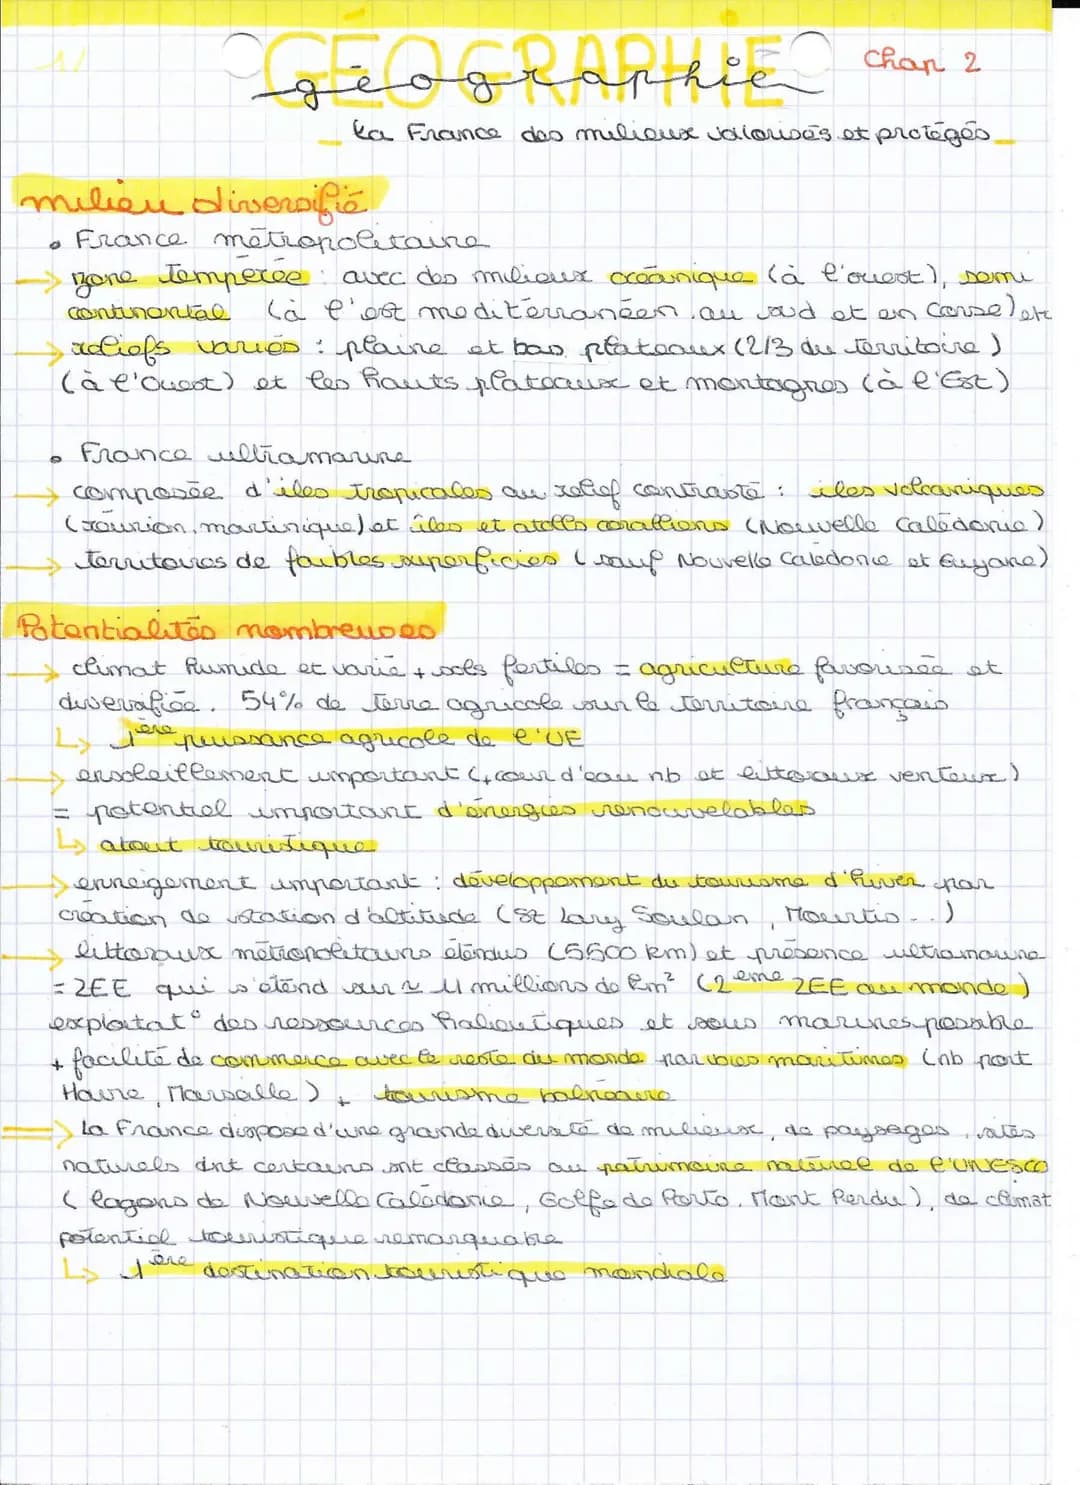 1/
GÉOGRAPHIE
géographie
Chap 2
La France des milieux valorisés et protégés
milieu diversifié
• France métropolitaine
→ zone tempérée : avec des milieux océanique (à l'ouest), semi
continental (à l'est mediterranéen au sud et en Corse) et
→ reliefs variés : plaine et bas plateaux (2/3 du territoire)
(à l'Ouest) et les hauts plateaux et montagnes (à l'Est)
• France ultramarine
→ composée d'îles tropicales au relief contrasté : îles volcaniques
(réunion, martinique) et îles et atolls coralliens (Nouvelle Calédonie)
→ territoires de faibles superficies (sauf Nouvelle Calédonie et Guyane)
Potentialités nombreuses
→ climat humide et varié + sols fertiles = agriculture favorisée et
diversifiée. 54% de terre agricole sur le territoire français
↳ 1ère puissance agricole de l'UE
→ ensoleillement important (+ cour d'eau nb et littoraux venteux)
= potentiel important d'énergies renouvelables
↳ atout touristique
→ enneigement important : développement du tourisme d'hiver par
création de station d'altitude (St Lary Soulan, Mourtis...)
→ littoraux métropolitains étendus (5500 km) et présence ultramarine
= ZEE qui s'étend sur ≈ 11 millions de km² (2ème ZEE au monde)
exploitat° des ressources halieutiques et sous marines possible
+ facilité de commerce avec le reste du monde par voies maritimes (nb port
Havre, Marseille) + tourisme balnéaire
⇒ La France dispose d'une grande diversité de milieux, de paysages, sites
naturels dnt certains snt classés au patrimoine naturel de l'UNESCO
(lagons de Nouvelle Calédonie, Golfe de Porto, Mont Perdu), de climat
potentiel touristique remarquable
↳ 1ère destination touristique mondiale